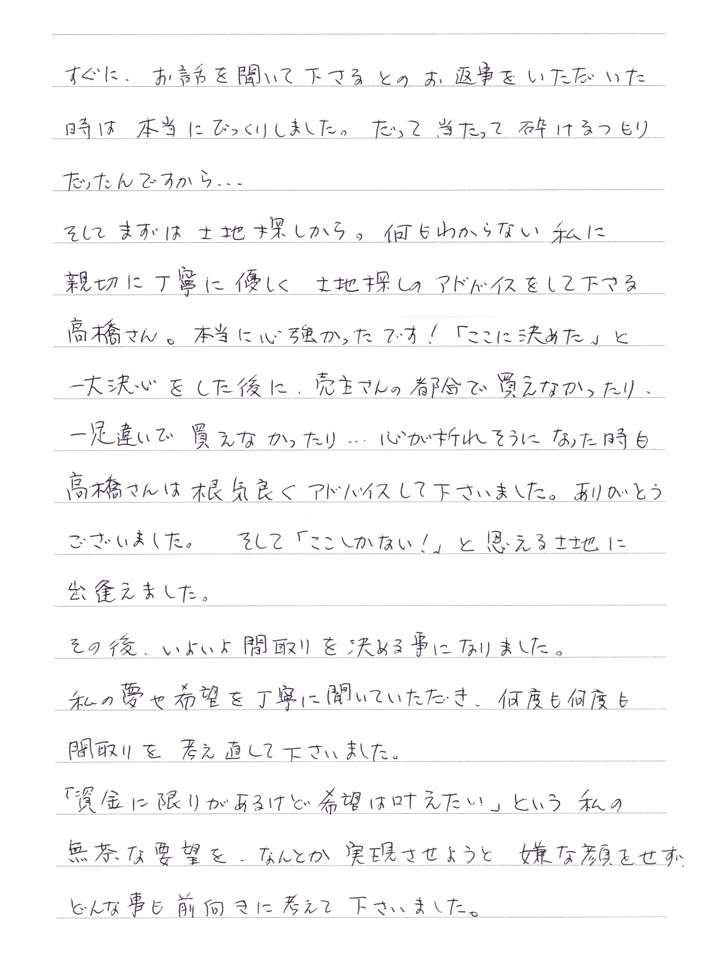 すぐに、お話を聞いて下さるとのお返事をいただいた
時は本当にびっくりしました。だって当たって砕けるつもり
だったんですから...
そしてまずは土地探しから。何もわからない私に
親切に丁寧に優しく土地探しのアドバイスをして下さる
高橋さん。本当に心強かったです!「ここに決めた」と
一大決心をした後に、売主さんの都合で買えなかったり、
一足違いで買えなかったり...心が折れそうになった時も
高橋さんは根気良くアドバイスして下さいました。ありがとう
ございました。 そして「ここしかない!」と思える土地に
出逢えました。
その後、いよいよ間取りを決める事になりました。
私の夢や希望を丁寧に聞いていただき、何度も何度も
間取りを考え直して下さいました。
「資金に限りがあるけど希望は叶えたい」という私の
無茶な要望を、なんとか実現させようと嫌な顔をせず、
どんな事も前向きに考えて下さいました。